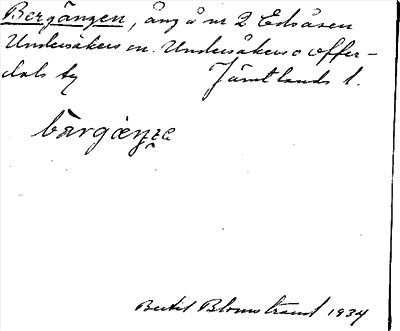 Bergängen, äng å nr 2 Edsåsen
Undersåkers sn. Undersåkers o Offer-
dals tg Jämtlands l.
bärgæŋ̣ɛ
Bertil Blomstrand 1934